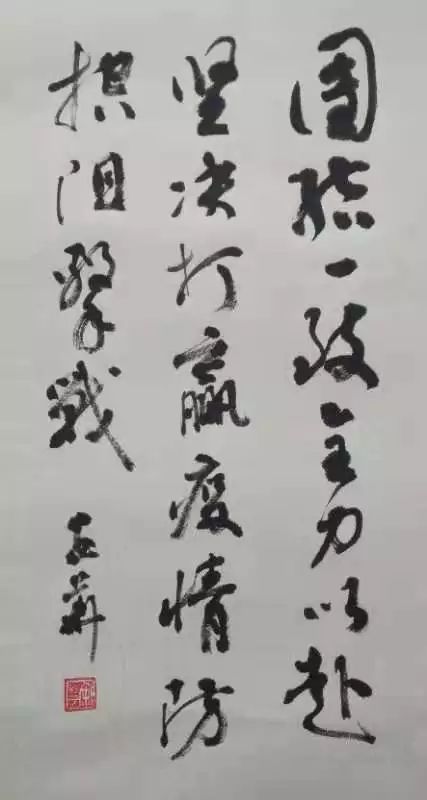 團结一致全力以赴
坚决打赢疫情防
控阻擊戰